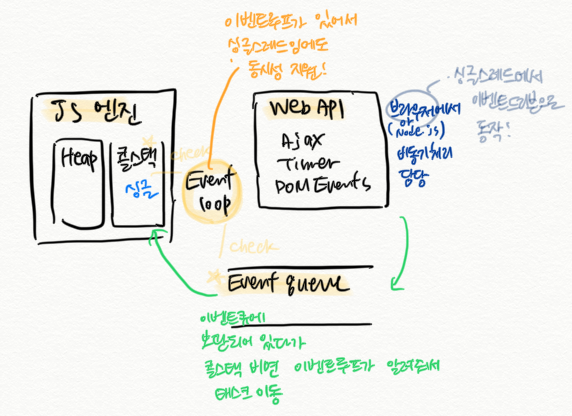 이벤트루프가 있어서
싱글스레드임에도
동시성 지원!
싱글스레드에서
이벤트드리븐으로
동작!
JS 엔진
Heap
콜스택
싱글
check
Event
loop
check
Web API
Ajax
Timer
DOM Events
브라우저에서
(Node js)
비동기처리
담당
Event queue
이벤트큐에
보관되어 있다가
콜스택 비면 이벤트루프가 알려줘서
태스크 이동